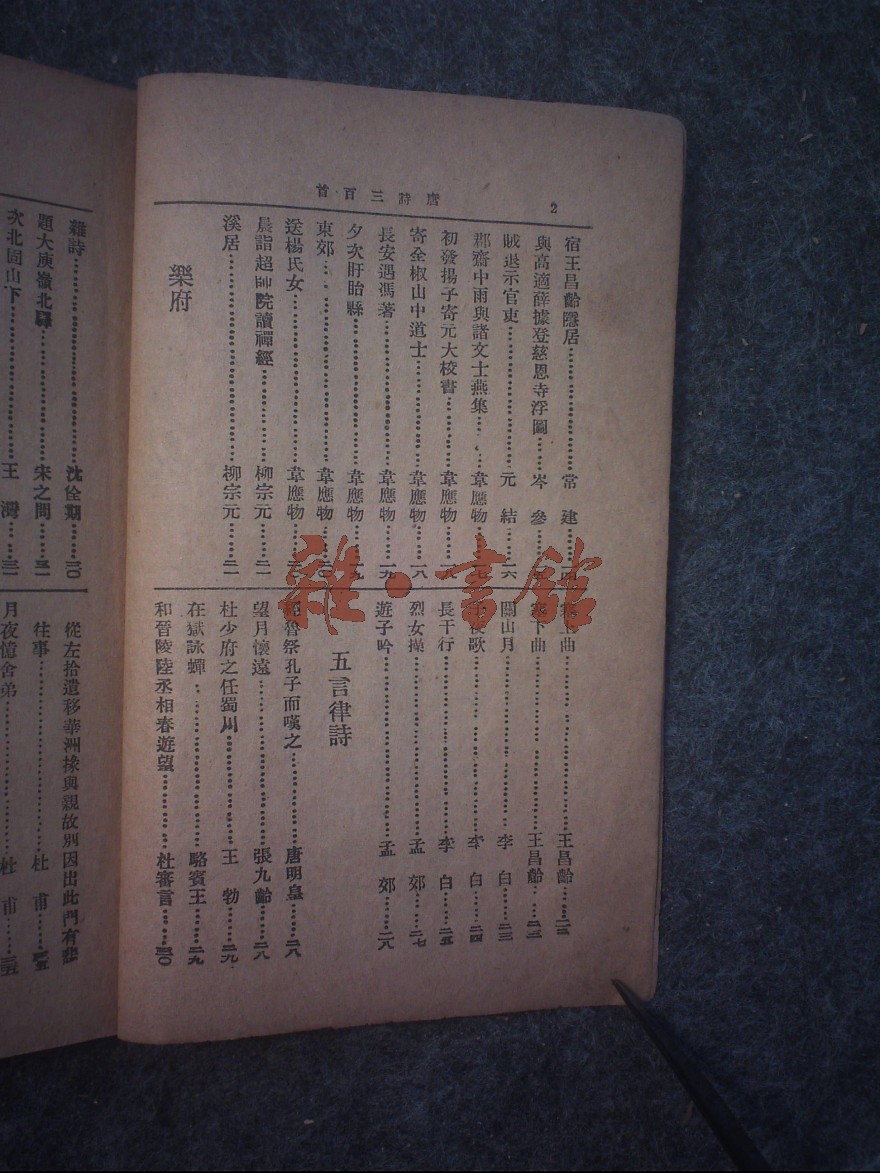 唐詩三百首
2
宿王昌齡隱居 常建
與高適薛據登慈恩寺浮圖 岑參
賊退示官吏 元結 一六
郡齋中雨與諸文士燕集 韋應物
初發揚子寄元大校書 韋應物
寄全椒山中道士 韋應物 一八
長安遇馮著 韋應物 一九
夕次盱眙縣 韋應物
東郊 韋應物
送楊氏女 韋應物
晨詣超師院讀禪經 柳宗元 二一
溪居 柳宗元 二一
樂府
塞上曲 王昌齡
塞下曲 王昌齡
關山月 李白 二三
李白 二四
長干行 李白 二五
烈女操 孟郊 二七
遊子吟 孟郊 二八
五言律詩
經魯祭孔子而嘆之 唐明皇 二八
望月懷遠 張九齡 二八
杜少府之任蜀川 王勃 二九
在獄詠蟬 駱賓王 二九
和晉陵陸丞相春遊望 杜審言 三〇
雜詩 沈佺期 三〇
題大庾嶺北驛 宋之問 三一
次北固山下 王灣 三一
從左拾遺移華洲掾與親故別因出此門有悲
往事 杜甫
月夜憶舍弟 杜甫
雜·書館